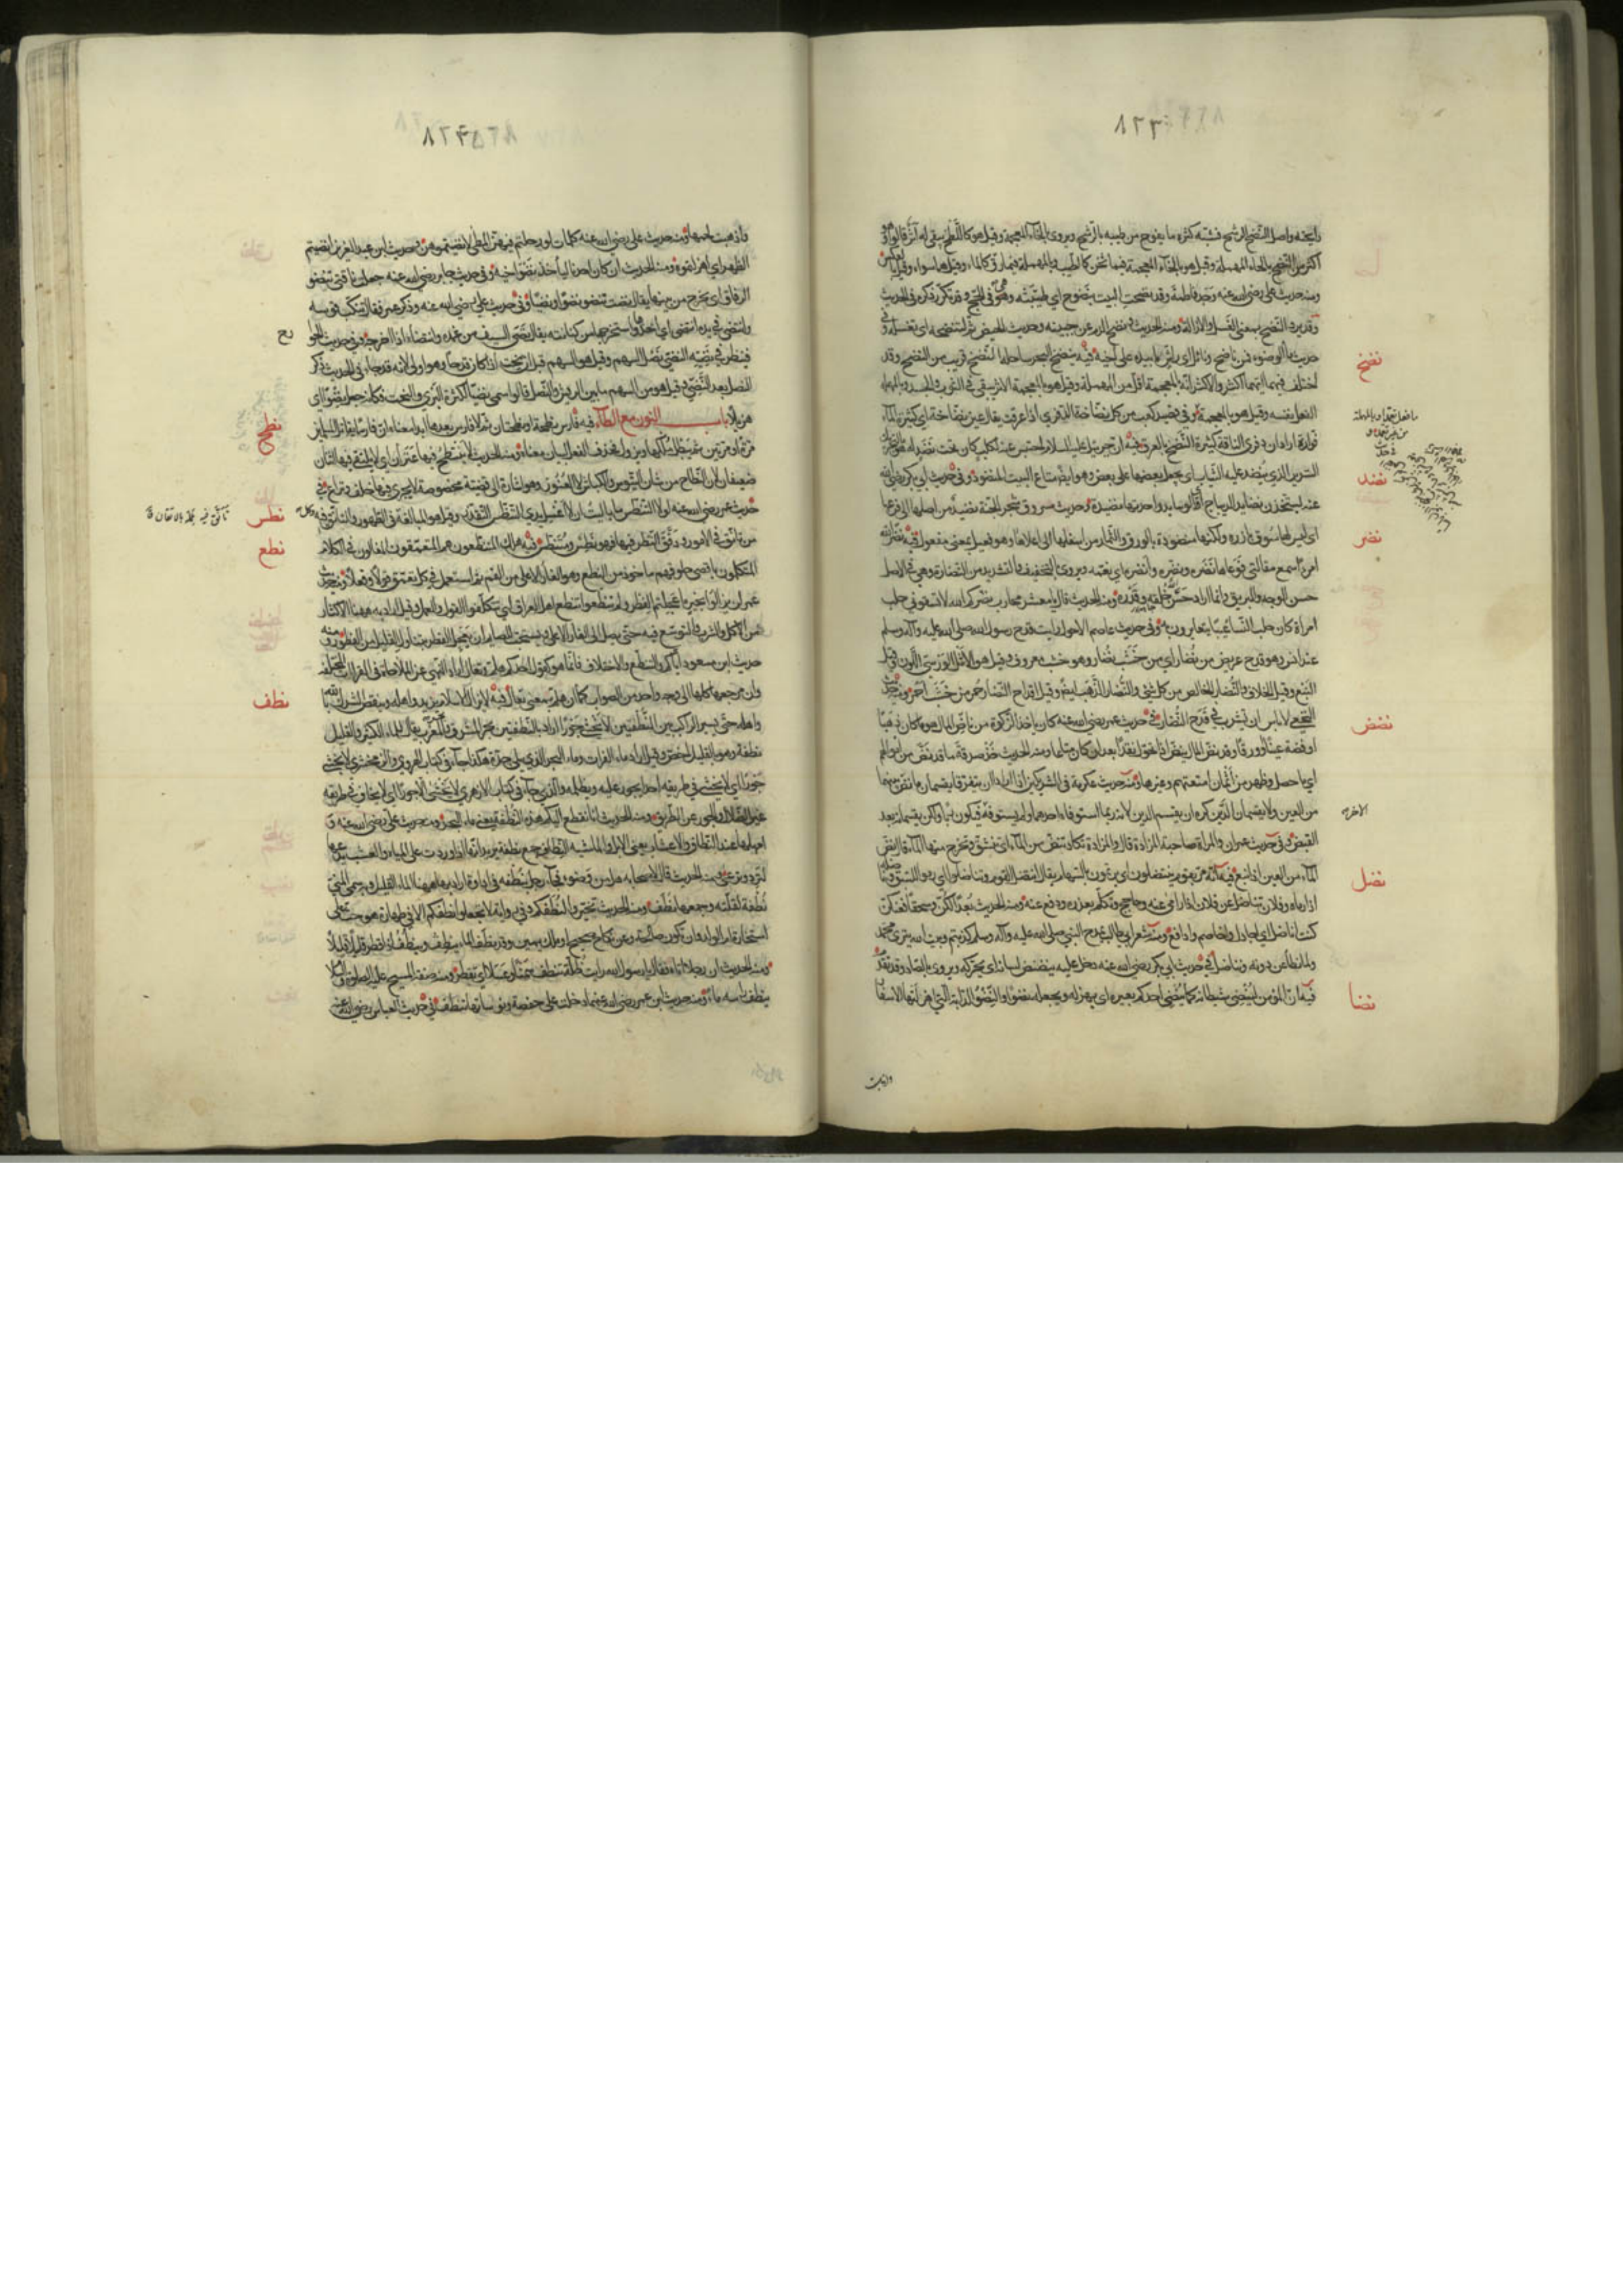 ٨٢٣
رايحته واصل النضح الرشح فشبه كثرة ما يفوح من طيبه بالرشح وروى بالخاء المعجمة وقيل هو كاللطخ يبقى له اثر قالوا وهو
اكثر من النضح بالحاء المهملة وقيل هو بالخاء المعجمة فيما ثخن كالطيب وبالمهملة فيما رق كالماء وقيل هما سواء وقيل بالعكس
ومنه حديث علي رضي الله عنه وجد فاطمة وقد نضحت البيت بنضوح اي طيبته وهي في الحج وقد تكرر ذكره في الحديث
وقد يرد النضح بمعنى الغسل والازالة ومنه الحديث ونضح الدم عن جبينه وحديث الحيض ثم لتنضحه اي تغسله وفي
حديث ماء الوضوء فمن ناضح ونائل اي راش مما بيده على اخيه فيه ينضخ البحر ساحله النضخ قريب من النضح وقد
اختلف فيهما ايهما اكثر والاكثر انه بالمعجمة اقل من المهملة وقيل هو بالمعجمة الاثر يبقى في الثوب والجسد وبالمهملة
الفعل نفسه وقيل هو بالمعجمة وفي قصيد كعب من كل نضاخة الذفرى اذا عرقت يقال عين نضاخة اي كثيرة الماء
فوارة اراد ان ذفرى الناقة كثيرة النضخ بالعرق فيه ان جبريل عليه السلام احتبس عنه لكلب كان تحت نضد له هو بالتحريك
السرير الذي ينضد عليه الثياب اي يجعل بعضها على بعض وهو ايضا متاع البيت المنضود وفي حديث ابي بكر رضي الله
عنه لتتخذن نضايد الديباج اي الوسايد واحدتها نضيدة وحديث مسروق شجر الجنة نضيد من اصلها الى فرعها
اي ليس لها سوق بارزة ولكنها منضودة بالورق والثمار من اسفلها الى اعلاها وهو فعيل بمعنى مفعول فيه نضر الله
امرءا سمع مقالتي فوعاها نضره ونضره وانضره اي نعمه ويروى بالتخفيف والتشديد من النضارة وهي في الاصل
حسن الوجه والبريق وانما اراد حسن خلقه وقدره ومنه الحديث قال يا معشر محارب نضركم الله لا تسقوني حلب
امراة كان حلب النساء عيبا يتعايرون به وفي حديث عاصم الاحول رايت قدح رسول الله صلى الله عليه وآله وسلم
عند انس وهو قدح عريض من نضار اي من خشب نضار وهو خشب معروف وقيل هو الاثل الورسي اللون وقيل
النبع وقيل الخلاف والنضار الخالص من كل شيء والنضار الذهب ايضا وقيل اقداح النضار حمر من خشب احمر ومنه حديث
النخعي لا باس ان يشرب في قدح النضار في حديث عمر رضي الله عنه كان ياخذ الزكوة من ناض المال هو ما كان ذهبا
او فضة عينا وورقا وقد نض المال ينض اذا تحول نقدا بعد ان كان متاعا ومنه الحديث خذ صدقة ما قد نض من اموالهم
اي ما حصل وظهر من اثمان امتعتهم وغيرها ومنه حديث عكرمة في الشريكين اذا ارادا ان يتفرقا يقتسمان ما نض بينهما
من العين ولا يقتسمان الدين كره ان يقتسم الدين لانه ربما استوفاه احدهما ولم يستوفه فيكون ربا ولكن يقتسمانه بعد
القبض وفي حديث عمران والمراة صاحبة المزادة قال والمزادة تكاد تنض من الماء اي تنشق ويخرج منها الماء يقال نض
الماء من العين اذا نبع فيه انه مر بقوم ينتضلون اي يرتمون بالسهام يقال انتضل القوم وتناضلوا اي رموا للسبق وناضله
اذا رماه وفلان يناضل عن فلان اذا رامى عنه وحاجج وتكلم بعذره ودفع عنه ومنه الحديث بعدا لكن وسحقا فعنكن
كنت اناضل اي اجادل واخاصم وادافع ومنه شعر ابي طالب يمدح النبي صلى الله عليه وآله وسلم كذبتم وبيت الله يبزى محمد
ولما نطاعن دونه ونناضل في حديث ابي بكر رضي الله عنه دخل عليه ينضنض لسانه اي يحركه ويروى بالصاد وقد تقدم
فيه ان المؤمن لينضي شيطانه كما ينضي احدكم بعيره اي يهزله ويجعله نضوا والنضو الدابة التي اهزلتها الاسفار
واذهبت
نضخ
نضد
نضر
نضض
الاخر
نضل
نضا
٨٢٤
واذهبت لحمها ومنه حديث علي رضي الله عنه كلمات لو رحلتم فيهن المطي لانضيتموهن وحديث ابن عبد العزيز انضيتم
الظهر اي اهزلتموه ومنه الحديث ان كان احدنا لياخذ نضو اخيه وفي حديث جابر رضي الله عنه جعلت ناقتي تنضو
الرفاق اي تخرج من بينها يقال نضت تنضو نضوا ونضيا وفي حديث علي رضي الله عنه وذكر عمر فقال تنكب قوسه
وانتضى في يده اسهما اي اخذ واستخرجها من كنانته يقال نضى السيف من غمده وانتضاه اذا اخرجه وفي حديث الخوا
رج
فينظر في نضيه النضي نصل السهم وقيل هو السهم قبل ان ينحت اذا كان قدحا وهو اولى لانه قد جاء في الحديث ذكر
النصل بعد النضي وقيل هو من السهم ما بين الريش والنصل قالوا سمي نضيا لكثرة البري والنحت فكانه جعل نضوا اي
هزيلا باب النون مع الطآء فيه فارس نطحة او نطحتان ثم لا فارس بعدها ابدا معناه ان فارسا يقاتل المسلمين
مرة او مرتين ثم يبطل ملكها ويزول فحذف الفعل لبيان معناه ومنه الحديث لا ينتطح فيها عنزان اي لا يلتقي فيها اثنان
ضعيفان لان النطاح من شان التيوس والكباش لا العنوز وهو اشارة الى قضية مخصوصة لا يجري فيها خلف ونزاع في
حديث عمر رضي الله عنه لولا التنطس ما باليت ان لا اغسل يدي التنطس التقذر وقيل هو المبالغة في الطهور والتانق فيه وكل
من تانق في الامور ودقق النظر فيها فهو نطس ومتنطس فيه هلك المتنطعون هم المتعمقون المغالون في الكلام
المتكلمون باقصى حلوقهم ماخوذ من النطع وهو الغار الاعلى من الفم ثم استعمل في كل تعمق قولا وفعلا ومنه حديث
عمر لن يزالوا بخير ما عجلتم الفطر ولم تنطعوا تنطع اهل العراق اي تتكلفوا القول والعمل وقيل اراد به ههنا الاكثار
من الاكل والشرب والتوسع فيه حتى يصل الى الغار الاعلى ويستحب للصايم ان يعجل الفطر بتناول القليل من الفطور ومنه
حديث ابن مسعود اياكم والتنطع والاختلاف فانما هو كقول احدكم هلم وتعال اراد النهي عن الملاحاة في القراآت المختلفة
وان مرجعها كلها الى وجه واحد من الصواب كما ان هلم بمعنى تعال فيه لا يزال الاسلام يزيد واهله وينقص الشرك
واهله حتى يسير الراكب بين النطفتين لا يخشى جورا اراد بالنطفتين بحر المشرق والمغرب يقال للماء الكثير والقليل
نطفة وهو بالقليل اخص وقيل اراد ماء الفرات وماء البحر الذي يلي جدة هكذا جاء في كتاب الهروي والزمخشري لا يخشى
جورا اي لا يخشى في طريقه احدا يجور عليه ويظلمه والذي جاء في كتاب الازهري لا يخشى الا جورا اي لا يخاف في طريقه
غير الضلال والجور عن الطريق ومنه الحديث انا نقطع اليكم هذه النطفة يعني ماء البحر ومنه حديث علي رضي الله عنه و
امهلها عند النطاف والاعشاب يعني الابل والماشية النطاف جمع نطفة يريد انها اذا وردت على المياه والعشب يدعها
لترد وترعى ومنه الحديث قال لاصحابه هل من وضوء فجاء رجل بنطفة في اداوة اراد بها ههنا الماء القليل وبه سمي المني
نطفة لقلته وجمعها نطف ومنه الحديث تخيروا لنطفكم وفي رواية لا تجعلوا نطفكم الا في طهارة هو حث على
استخارة ام الولد وان تكون صالحة وعن نكاح صحيح او ملك يمين وقد نطف الماء ينطف وينطف اذا قطر قليلا قليلا
ومنه الحديث ان رجلا اتاه فقال يا رسول الله رايت ظلة تنطف سمنا وعسلا اي تقطر ومنه صفة المسيح عليه الصلوة والسلام
ينطف راسه ماء ومنه حديث ابن عمر رضي الله عنهما دخلت على حفصة ونوساتها تنطف وفي حديث العباس رضي الله عنه
نطح
نطس
نطع
نطف